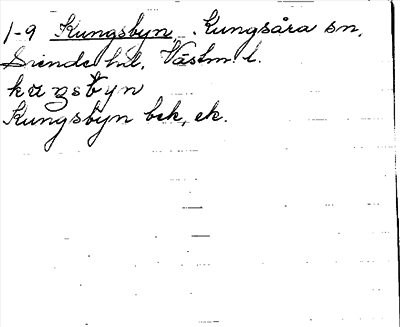 1-9 Kungsbyn, Kungsåra sn,
Siende hd, Västm. l.
kuŋsbyn
Kungsbyn bek, ek.